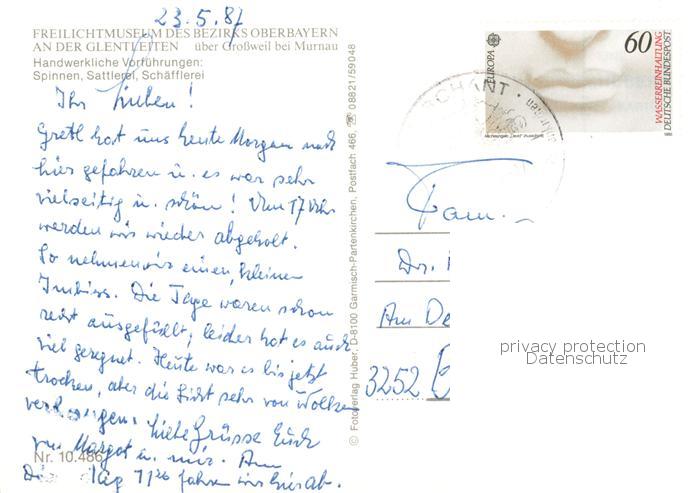 23.5.87
FREILICHTMUSEUM DES BEZIRKS OBERBAYERN
AN DER GLENTLEITEN über Großweil bei Murnau
Handwerkliche Vorführungen:
Spinnen, Sattlerei, Schäfflerei
Ihr Lieben!
Gretl hat uns heute Morgen nach
hier gefahren u. es war sehr
vielseitig u. schön! Um 17 Uhr
werden wir wieder abgeholt.
So nehmen wir einen kleinen
Imbiss. Die Tage waren schon
recht ausgefüllt, leider hat es auch
viel geregnet. Heute war es bis jetzt
trocken, aber die Sicht sehr von Wolken
Liebe Grüsse Euch
von Margot u. mir. Am
7/26 fahren wir hier ab.
Nr. 10.486
© Fotoverlag Huber, D-8100 Garmisch-Partenkirchen, Postfach 466, ☏ 08821/59048
EUROPA
60
WASSERREINHALTUNG
DEUTSCHE BUNDESPOST
Fam.
Drs.
Am De
3252
privacy protection
Datenschutz